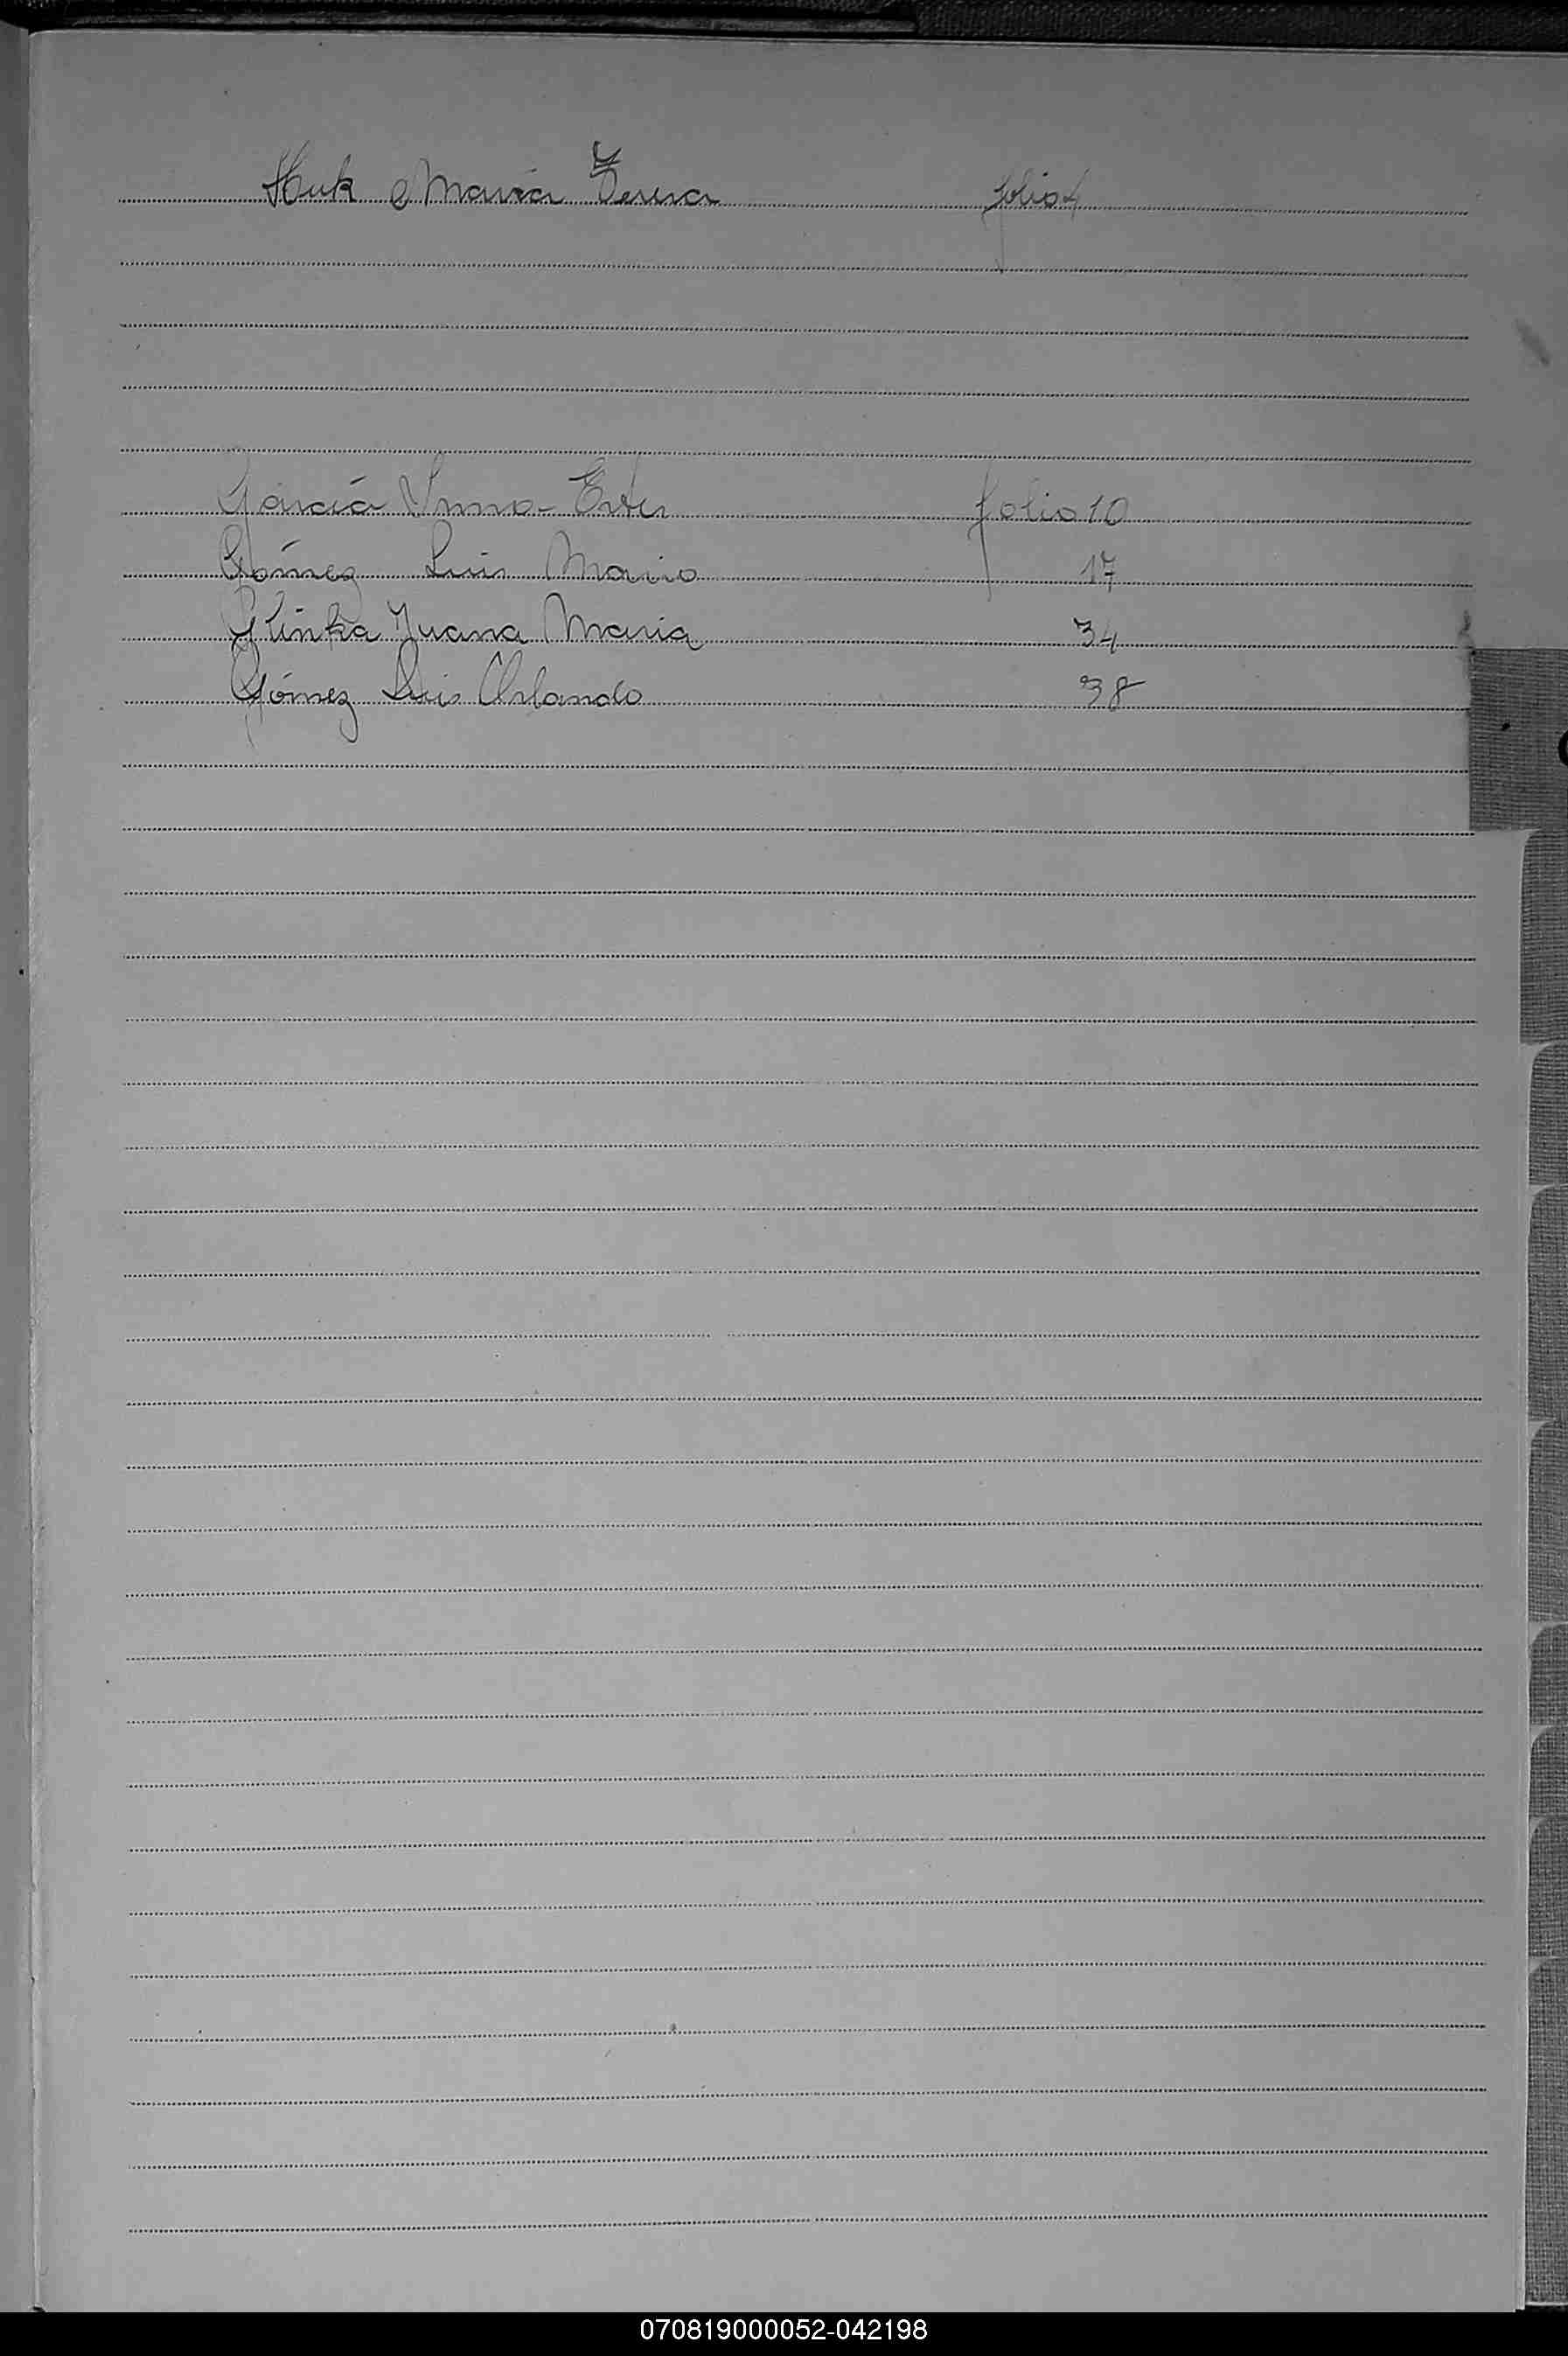 Huk María Teresa folio 4
García Irma Ester folio 10
Gómez Luis Mario 17
Glinka Juana Maria 34
Gómez Luis Orlando 38
070819000052-042198